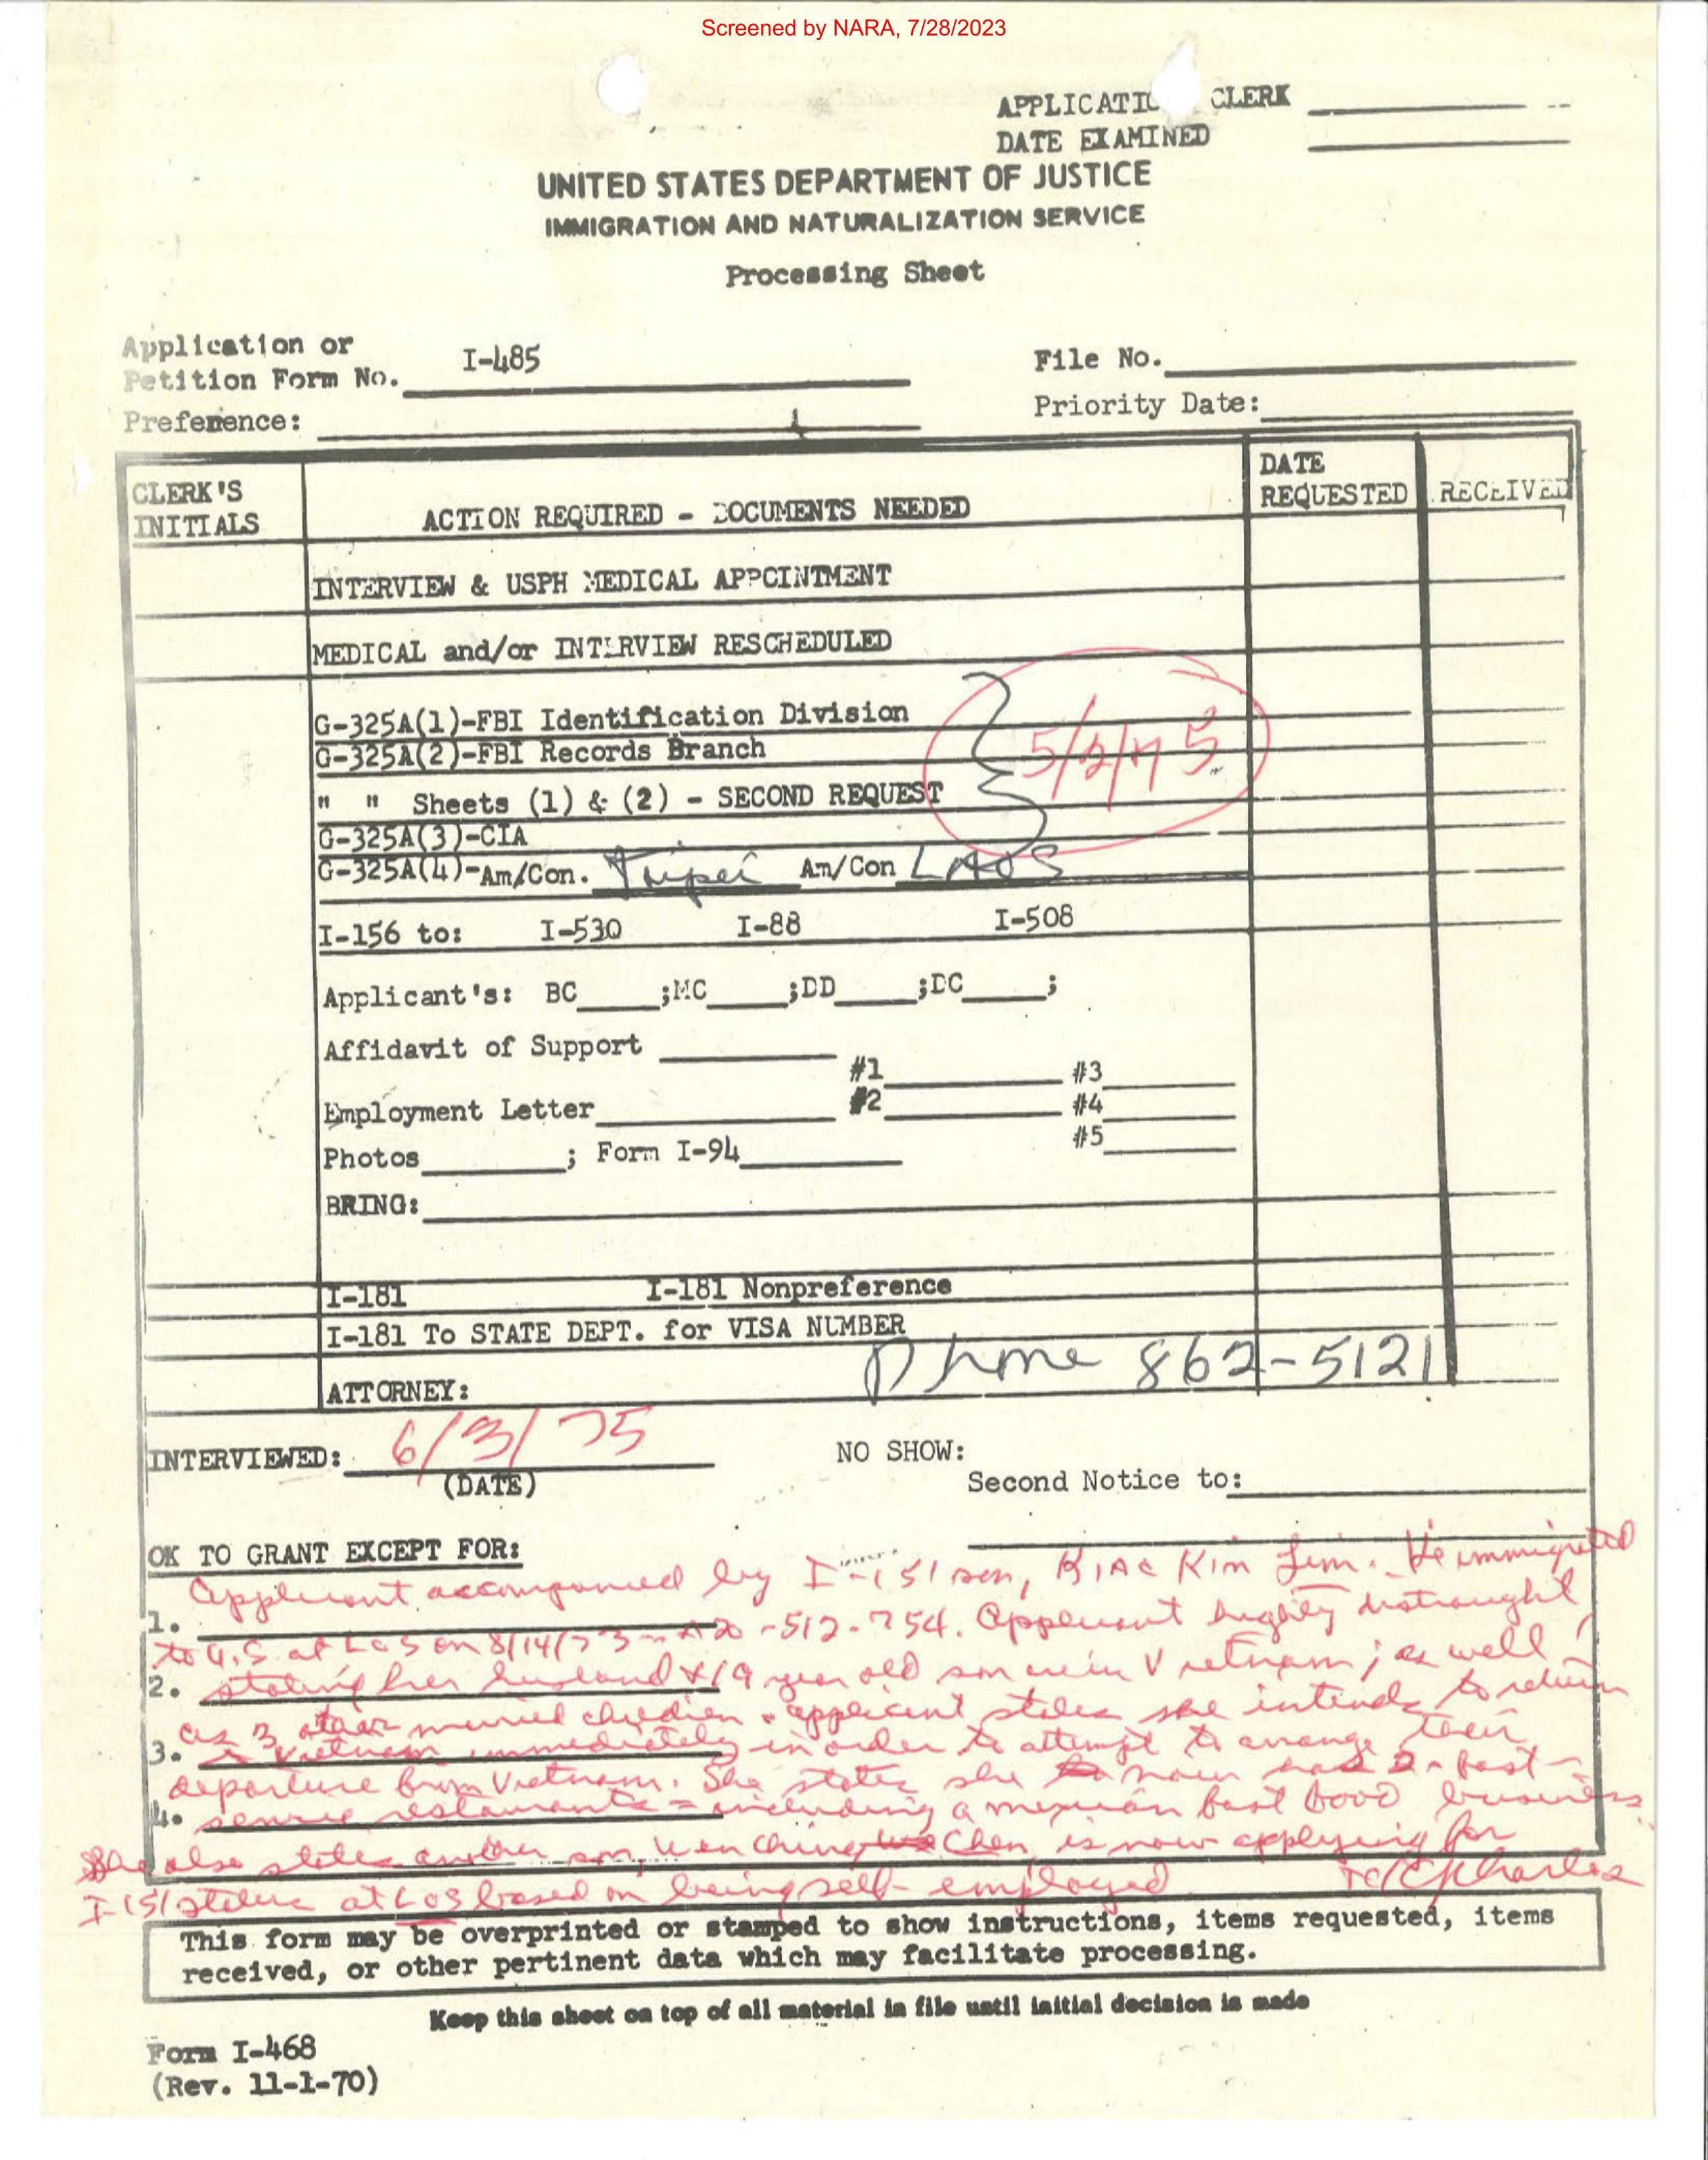 Screened by NARA, 7/28/2023
APPLICATIO CLERK
DATE EXAMINED
UNITED STATES DEPARTMENT OF JUSTICE
IMMIGRATION AND NATURALIZATION SERVICE
Processing Sheet
Application or
Petition Form No. I-485
File No.
Preference:
Priority Date:
CLERK'S INITIALS
ACTION REQUIRED - DOCUMENTS NEEDED
DATE REQUESTED
RECEIVED
INTERVIEW & USPH MEDICAL APPOINTMENT
MEDICAL and/or INTERVIEW RESCHEDULED
G-325A(1)-FBI Identification Division
G-325A(2)-FBI Records Branch
5/2/75
" " Sheets (1) & (2) - SECOND REQUEST
G-325A(3)-CIA
G-325A(4)-Am/Con. Taipei Am/Con LAOS
I-156 to: I-530 I-88 I-508
Applicant's: BC ;MC ;DD ;DC ;
Affidavit of Support
#1 #3
Employment Letter #2 #4
#5
Photos ; Form I-94
BRING:
I-181 I-181 Nonpreference
I-181 To STATE DEPT. for VISA NUMBER
Phone 862-5121
ATTORNEY:
INTERVIEWED: 6/3/75
(DATE)
NO SHOW:
Second Notice to:
OK TO GRANT EXCEPT FOR:
Applicant accompanied by I-151 son, Kim Lim. He immigrated
1.
to U.S at LOS on 8/14/73 - A20-512-754. Applicant highly distraught
2. stating her husband & 19 year old son are in Vietnam; as well
as 3 other married children. applicant states she intends to return
3. to Vietnam immediately in order to attempt to arrange their
departure from Vietnam. She states she now has 2 fast
4. service restaurants - including a mexican fast food business
She also states another son, Wen Ching Chen, is now applying for
I-151 status at LOS based on being self-employed
This form may be overprinted or stamped to show instructions, items requested, items
received, or other pertinent data which may facilitate processing.
Keep this sheet on top of all material in file until initial decision is made
Form I-468
(Rev. 11-1-70)